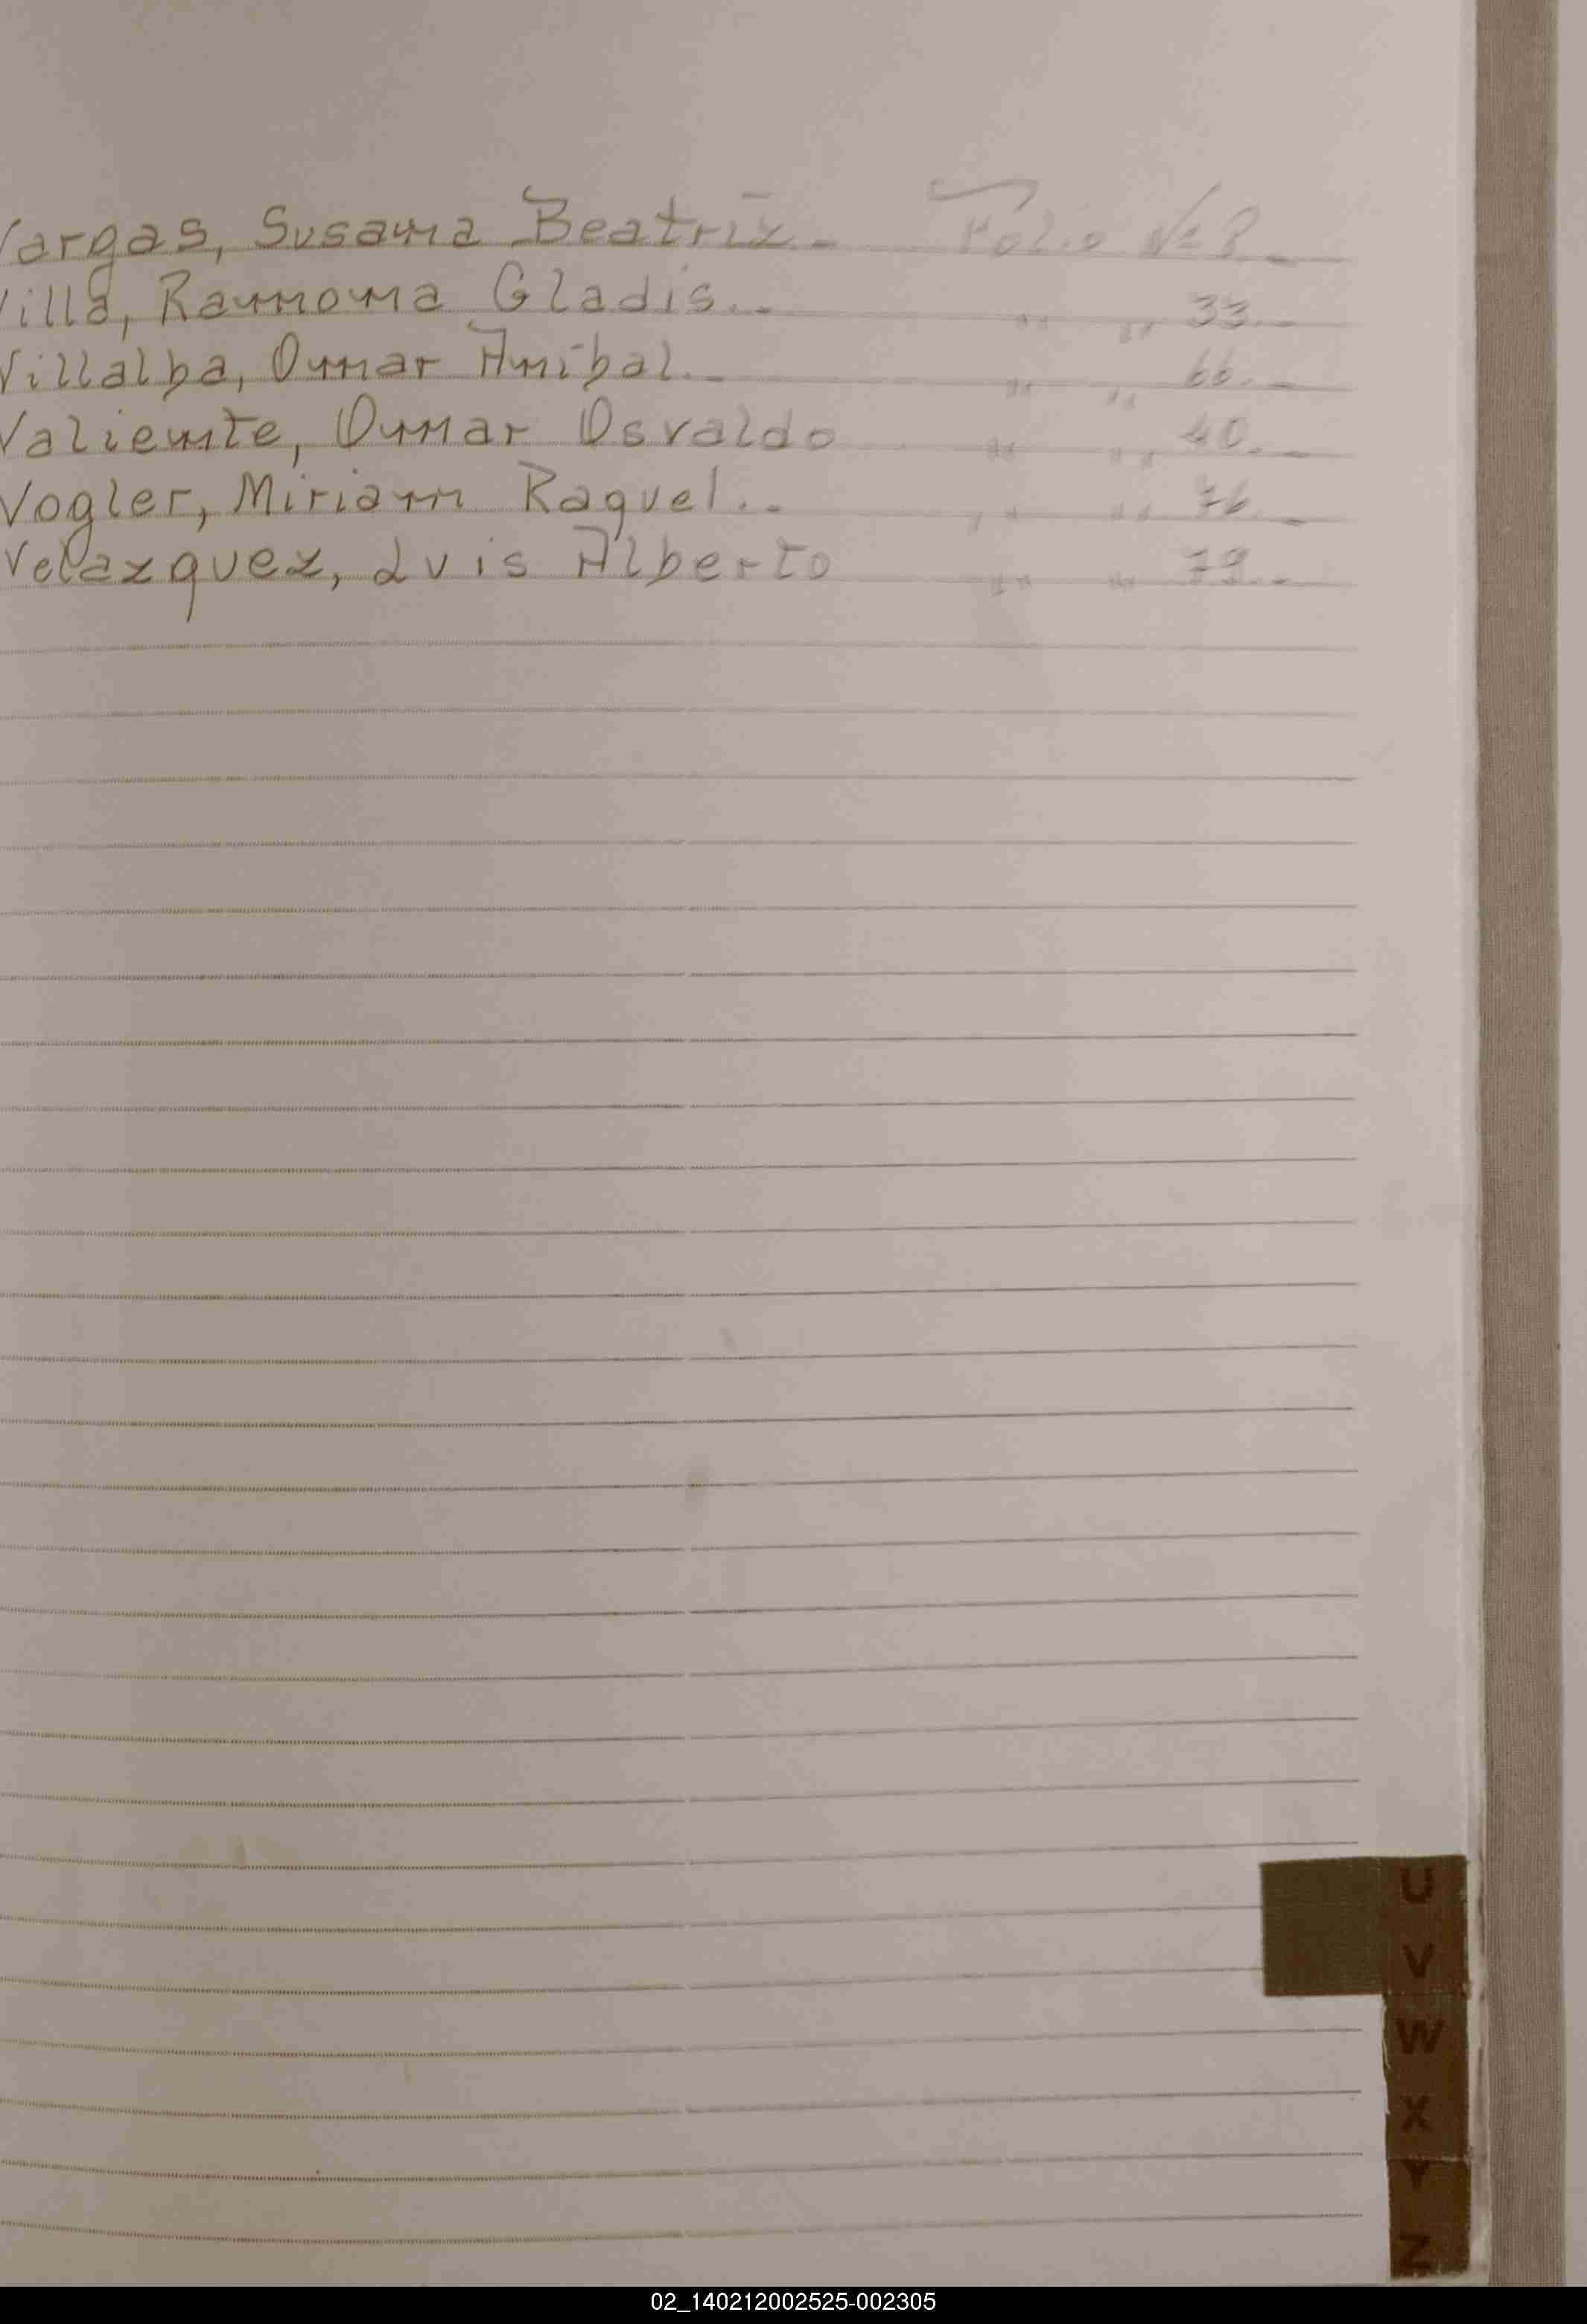 Vargas, Susana Beatríz.- Folio Nº 8.-
Villa, Ramona Gladis.- " " 33.-
Villalba, Omar Anibal.- " " 66.-
Valiente, Omar Osvaldo " " 40.-
Vogler, Miriam Raquel.- " " 76.-
Velazquez, Luis Alberto " " 79.-
U
V
W
X
Y
Z
02_140212002525-002305